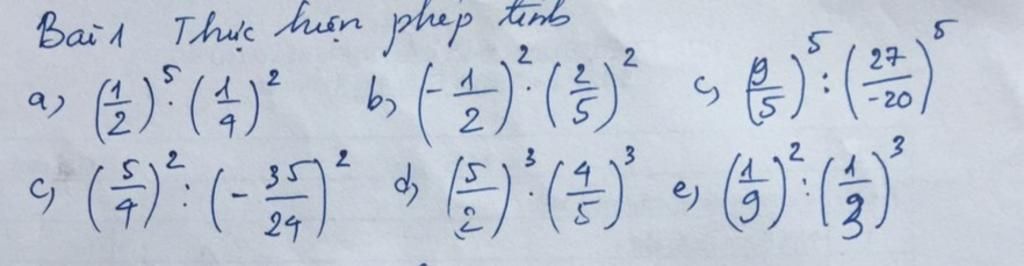 Bài 1 Thực hiện phép tính
a) (1/2)^5 · (1/4)^2 b) (-1/2)^2 · (2/5)^2 c) (9/5)^5 : (27/-20)^5
c) (5/4)^2 : (-35/24)^2 d) (5/2)^3 · (4/5)^3 e) (1/9)^2 : (1/3)^3